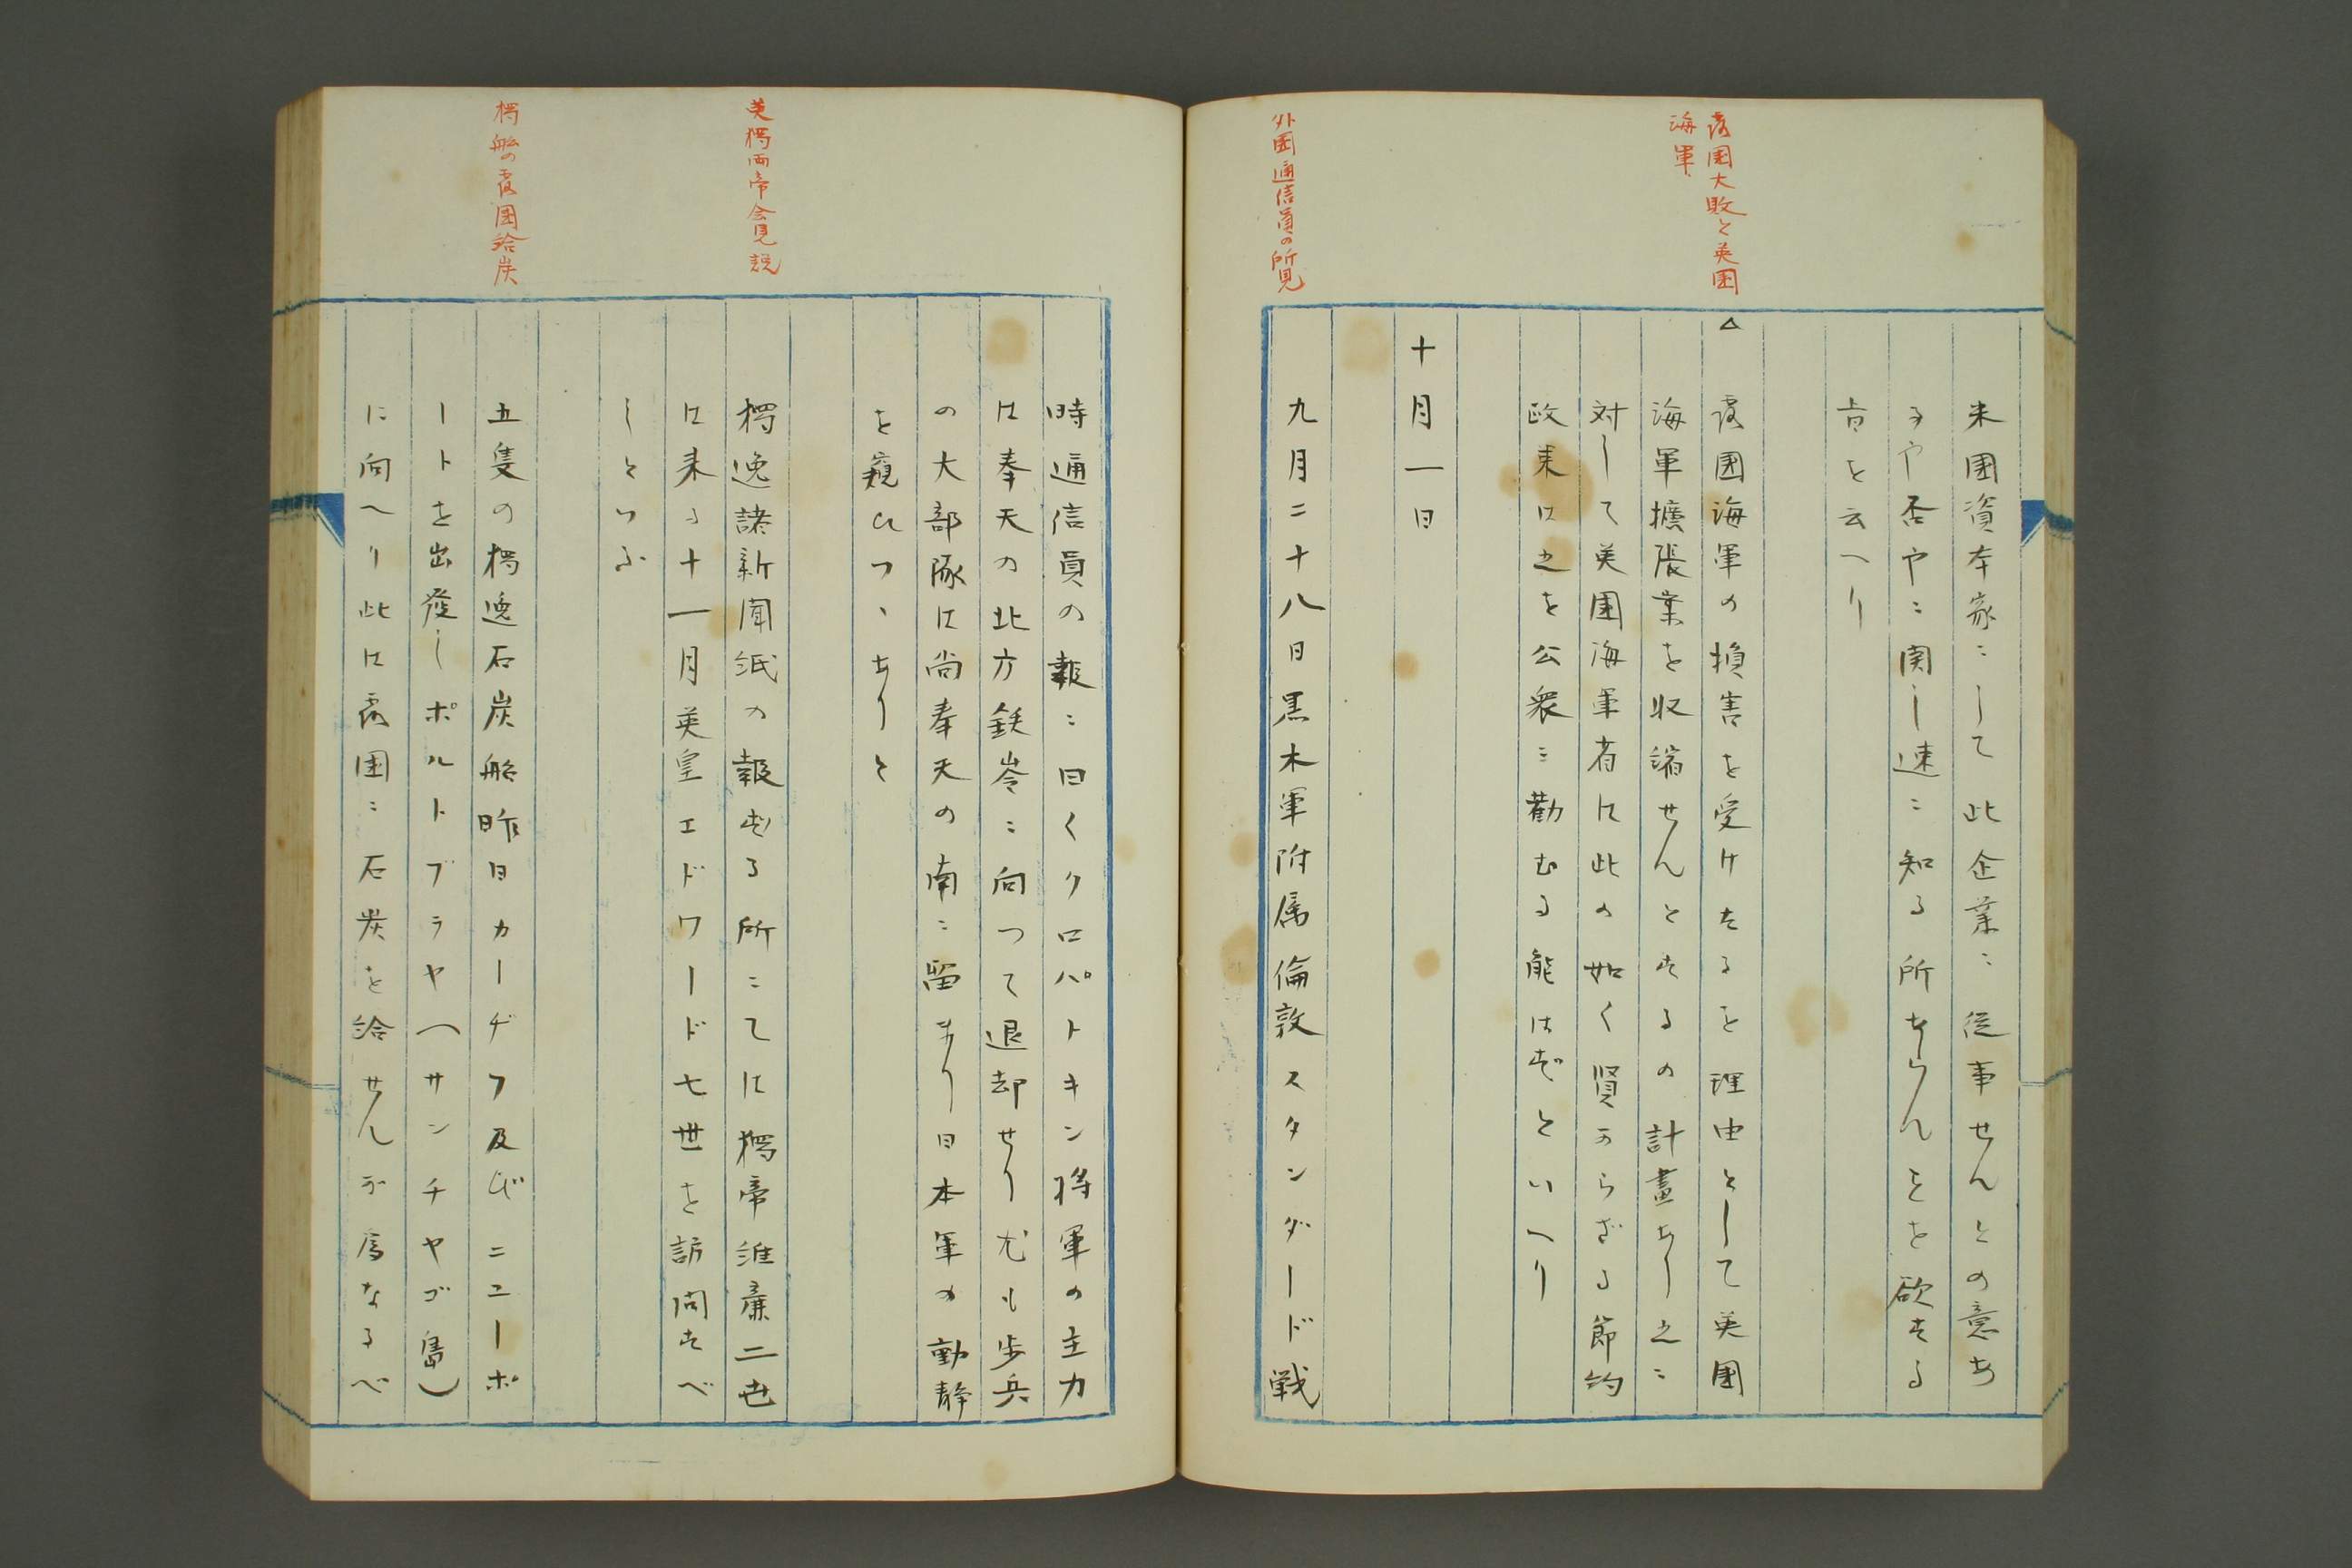 米國資本家にして此企業に従事せんとの意あ
るや否やに関し速に知る所あらんことを欲する
旨を云へり
露国大敗と英国
海軍
△露国海軍の損害を受けたるを理由として英國
海軍擴張業を収縮せんとするの計畫あり之に
対して英国海軍者は此の如く賢からざる節約
政策は之を公衆に勸むる能はずといへり
十月一日
外国通信員の所見
九月二十八日黒木軍附属倫敦スタンダード戦
時通信員の報に曰くクロパトキン将軍の主力
は奉天の北方鉄岺に向つて退却せり尤も歩兵
の大部隊は尚奉天の南に留まり日本軍の動静
を窺ひつゝありと
英獨両帝会見説
獨逸諸新聞紙の報ずる所にては獨帝維廉二世
は来る十一月英皇エドワード七世を訪問すべ
しといふ
獨船の露国給炭
五隻の獨逸石炭船昨日カーヂフ及びニユーポ
ートを出發しポルトプラヤ(サンチヤゴ島)
に向へり此は露国に石炭を給せんが為なるべ